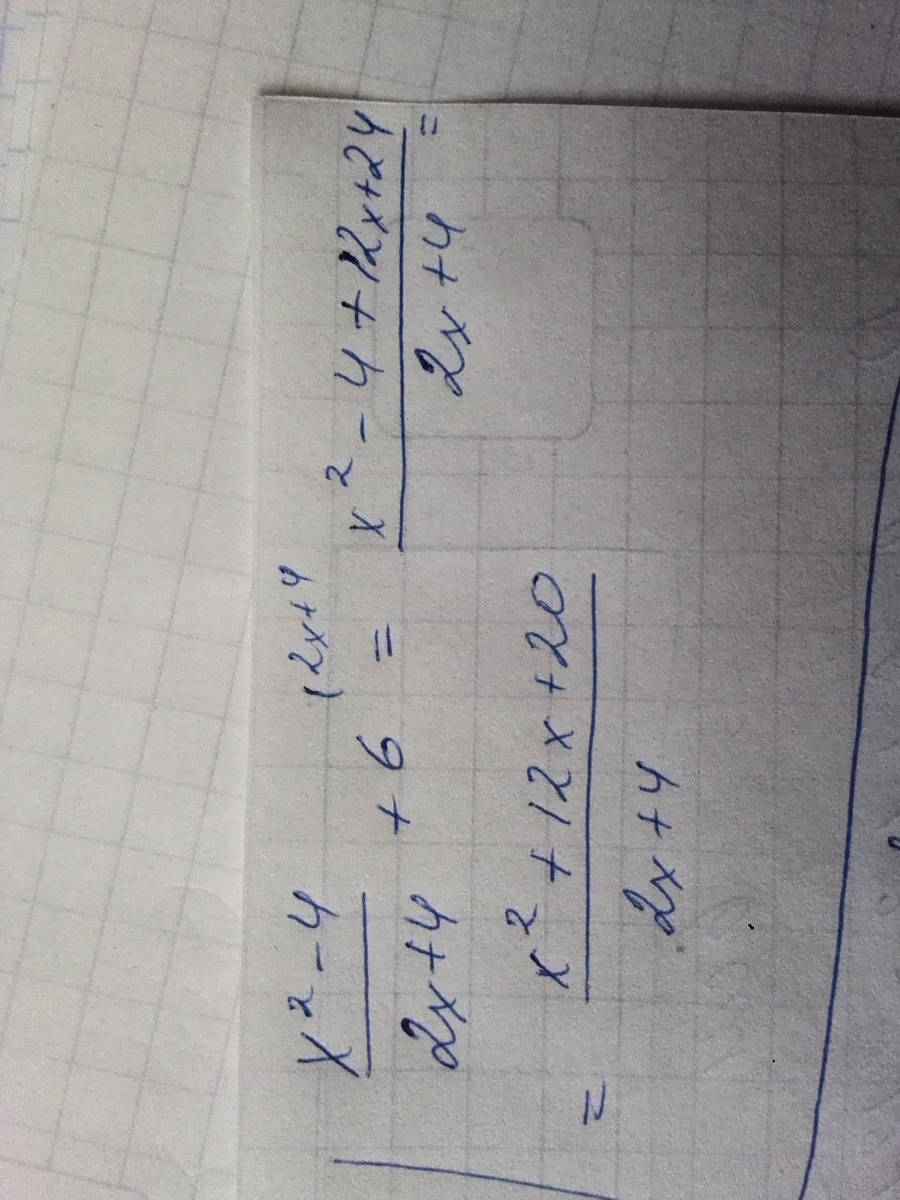 x² - 4 / 2x+4 + 6 (2x+4 = x² - 4 + 12x+24 / 2x+4 =
= x² + 12x + 20 / 2x+4